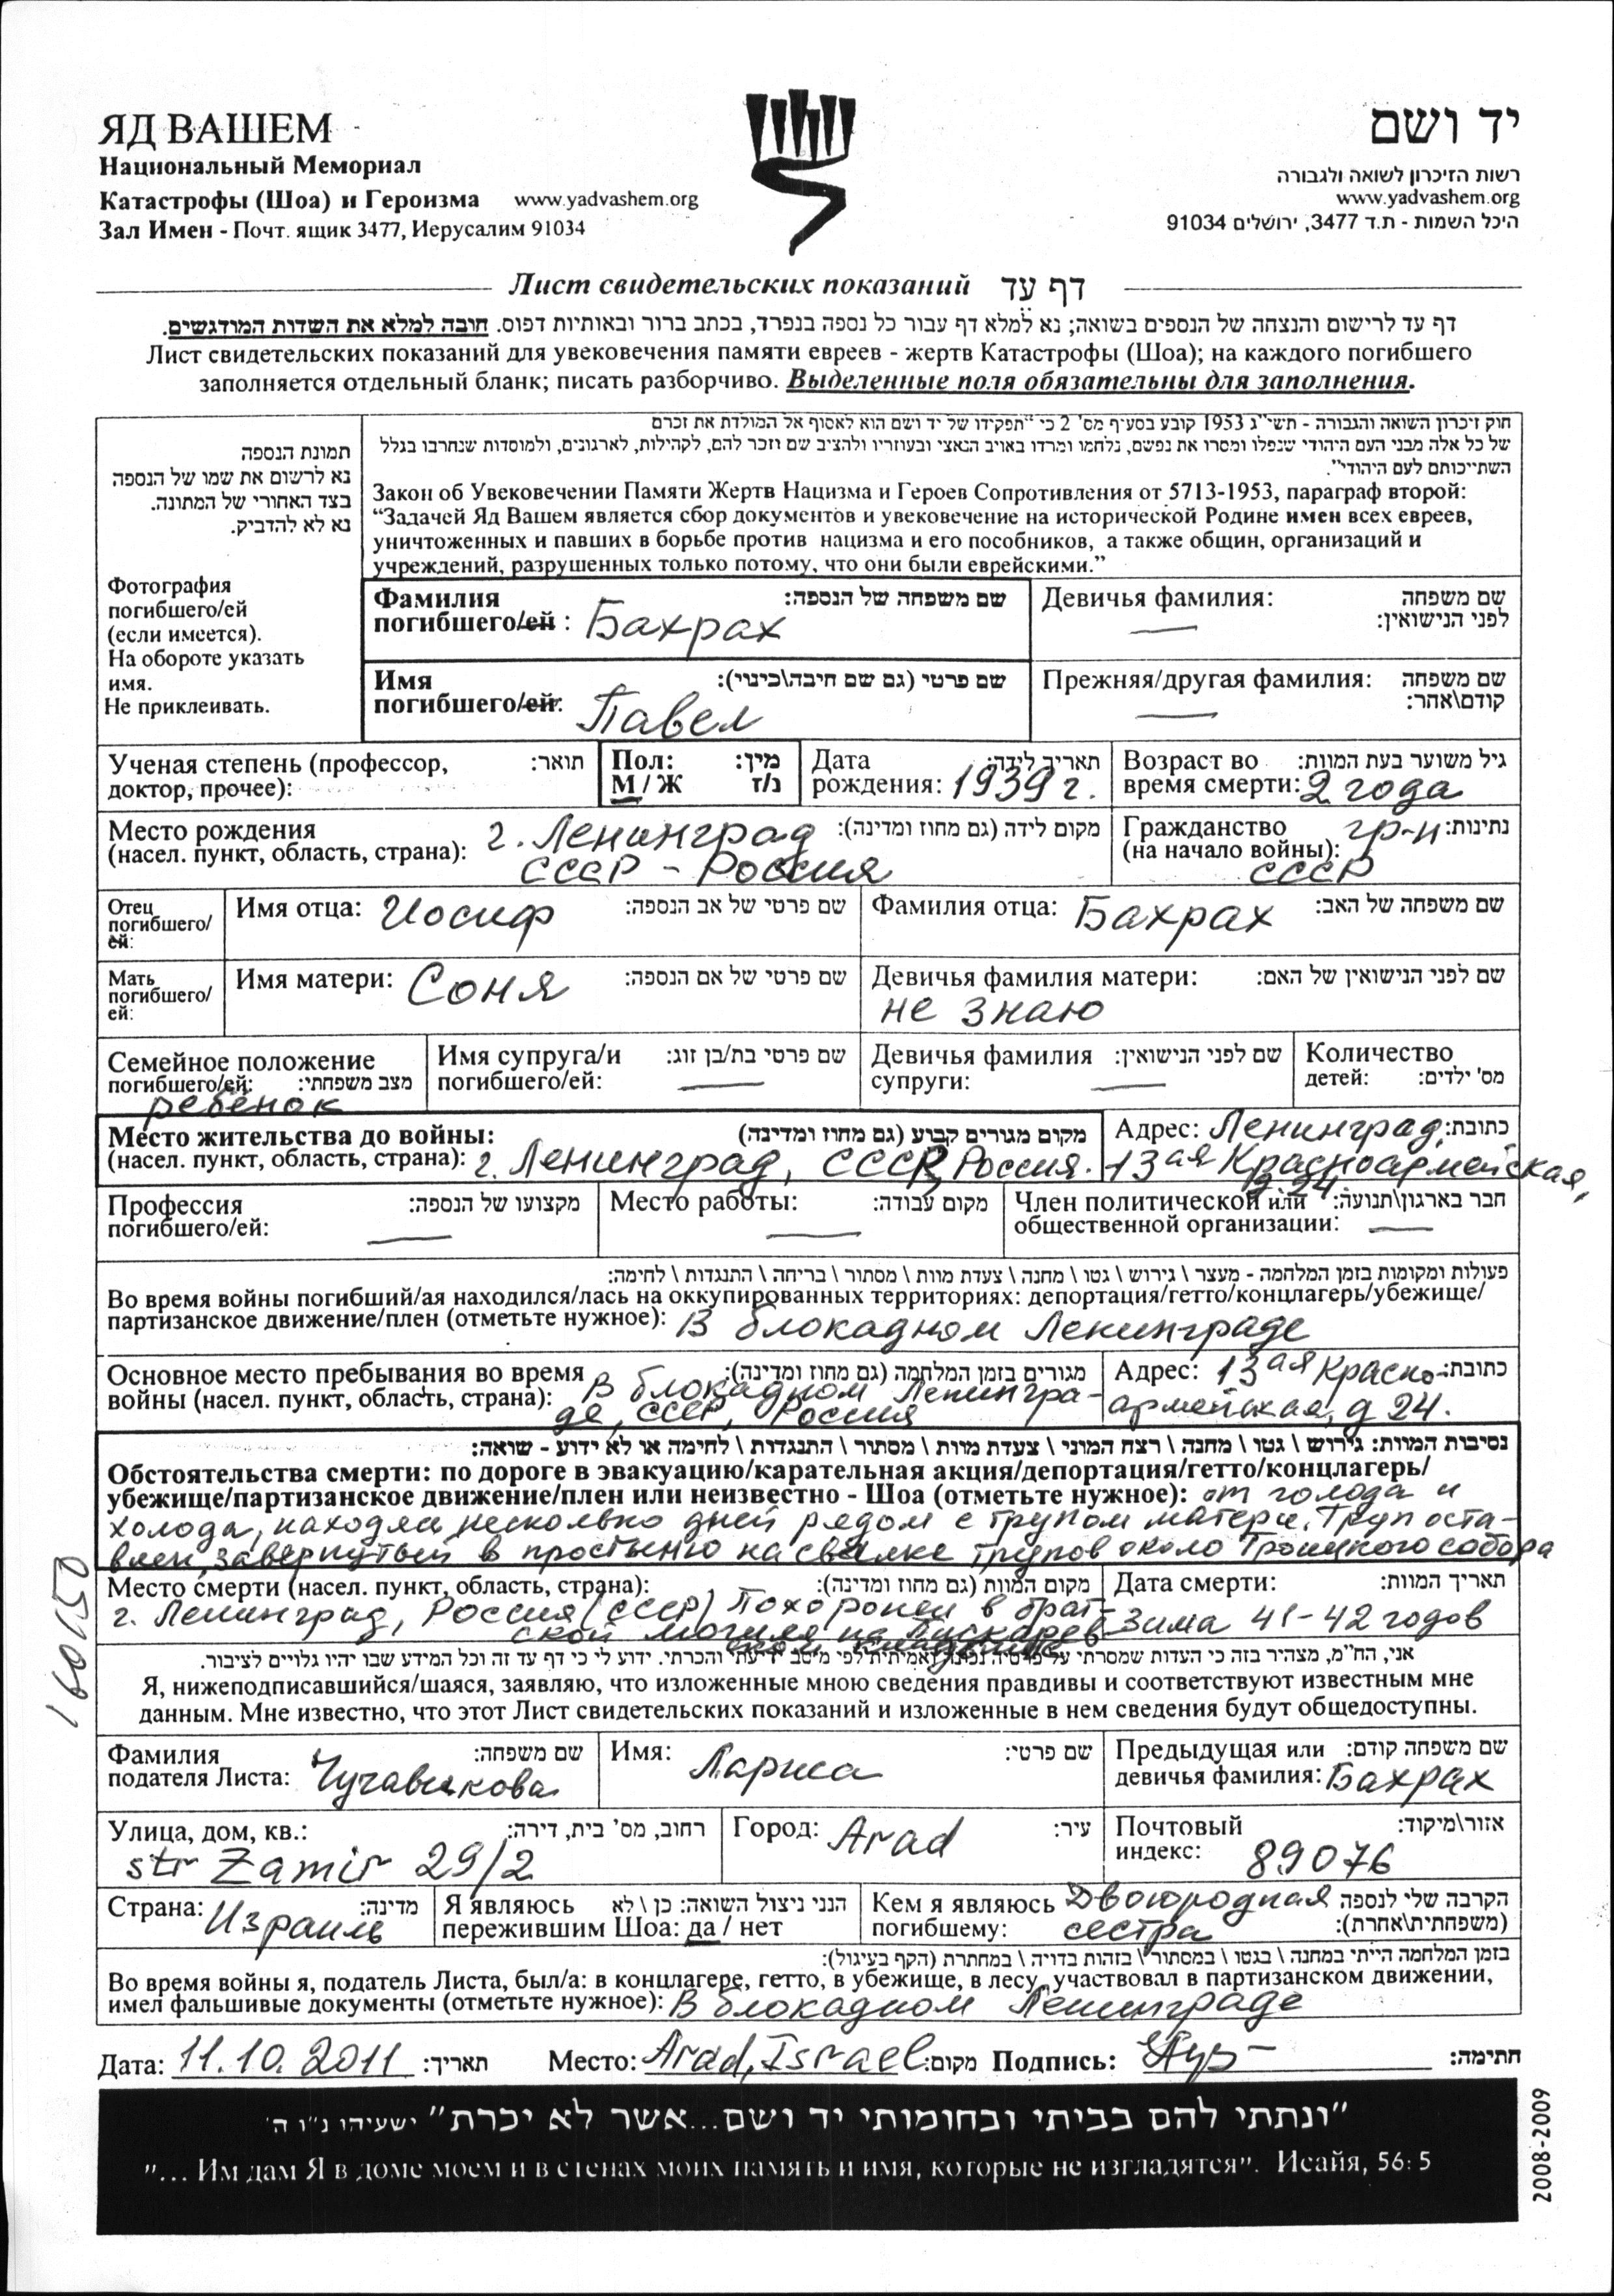 ЯД ВАШЕМ
Национальный Мемориал
Катастрофы (Шоа) и Героизма www.yadvashem.org
Зал Имен - Почт. ящик 3477, Иерусалим 91034
יד ושם
רשות הזיכרון לשואה ולגבורה
www.yadvashem.org
היכל השמות - ת.ד 3477, ירושלים 91034
Лист свидетельских показаний דף עד
דף עד לרישום והנצחה של הנספים בשואה; נא למלא דף עבור כל נספה בנפרד, בכתב ברור ובאותיות דפוס. חובה למלא את השדות המודגשים.
Лист свидетельских показаний для увековечения памяти евреев - жертв Катастрофы (Шоа); на каждого погибшего
заполняется отдельный бланк; писать разборчиво. Выделенные поля обязательны для заполнения.
תמונת הנספה
נא לרשום את שמו של הנספה
בצד האחורי של המתונה.
נא לא להדביק.
Фотография
погибшего/ей
(если имеется).
На обороте указать
имя.
Не приклеивать.
חוק זיכרון השואה והגבורה - תשי"ג 1953 קובע בסעיף מס' 2 כי "תפקידו של יד ושם הוא לאסוף אל המולדת את זכרם
של כל אלה מבני העם היהודי שנפלו ומסרו את נפשם, נלחמו ומרדו באויב הנאצי ובעוזריו ולהציב שם וזכר להם, לקהילות, לארגונים, ולמוסדות שנחרבו בגלל
השתייכותם לעם היהודי".
Закон об Увековечении Памяти Жертв Нацизма и Героев Сопротивления от 5713-1953, параграф второй:
“Задачей Яд Вашем является сбор документов и увековечение на исторической Родине имен всех евреев,
уничтоженных и павших в борьбе против нацизма и его пособников, а также общин, организаций и
учреждений, разрушенных только потому, что они были еврейскими.”
Фамилия שם משפחה של הנספה:
погибшего/ей : Бахрах
Девичья фамилия: שם משפחה
לפני הנישואין: —
Имя שם פרטי (גם שם חיבה\כינוי):
погибшего/ей: Павел
Прежняя/другая фамилия: שם משפחה
קודם\אחר: —
Ученая степень (профессор, תואר:
доктор, прочее):
Пол: מין:
М / Ж ז/נ
Дата תאריך לידה:
рождения: 1939 г.
Возраст во גיל משוער בעת המוות:
время смерти: 2 года
Место рождения г. Ленинград מקום לידה (גם מחוז ומדינה):
(насел. пункт, область, страна): СССР - Россия
Гражданство гр-н נתינות:
(на начало войны): СССР
Отец
погибшего/
ей:
Имя отца: Иосиф שם פרטי של אב הנספה:
Фамилия отца: Бахрах שם משפחה של האב:
Мать
погибшего/
ей:
Имя матери: Соня שם פרטי של אם הנספה:
Девичья фамилия матери: שם לפני הנישואין של האם:
не знаю
Семейное положение
погибшего/ей: מצב משפחתי:
ребенок
Имя супруга/и שם פרטי בת/בן זוג:
погибшего/ей: —
Девичья фамилия שם לפני הנישואין:
супруги: —
Количество
детей: מס' ילדים:
Место жительства до войны: מקום מגורים קבוע (גם מחוז ומדינה)
(насел. пункт, область, страна): г. Ленинград, СССР, Россия.
Адрес: Ленинград, כתובת:
13ая Красноармейская,
д. 24.
Профессия מקצועו של הנספה:
погибшего/ей: —
Место работы: מקום עבודה:
—
Член политической или חבר בארגון\תנועה:
общественной организации: —
פעולות ומקומות בזמן המלחמה - מעצר \ גירוש \ גטו \ מחנה \ צעדת מוות \ מסתור \ בריחה \ התנגדות \ לחימה:
Во время войны погибший/ая находился/лась на оккупированных территориях: депортация/гетто/концлагерь/убежище/
партизанское движение/плен (отметьте нужное): В блокадном Ленинграде
Основное место пребывания во время מגורים בזמן המלחמה (גם מחוז ומדינה):
войны (насел. пункт, область, страна): В блокадном Ленингра-
де, СССР, Россия
Адрес: 13ая Красно- כתובת:
армейская, д 24.
נסיבות המוות: גירוש \ גטו \ מחנה \ רצח המוני \ צעדת מוות \ מסתור \ התנגדות \ לחימה או לא ידוע - שואה:
Обстоятельства смерти: по дороге в эвакуацию/карательная акция/депортация/гетто/концлагерь/
убежище/партизанское движение/плен или неизвестно - Шоа (отметьте нужное): от голода и
холода, находясь несколько дней рядом с трупом матери. Труп оста-
влен, завернутый в простыню на свалке трупов около Троицкого собора
Место смерти (насел. пункт, область, страна): מקום המוות (גם מחוז ומדינה):
г. Ленинград, Россия (СССР) Похоронен в брат-
ской могиле на Пискарев-
ском кладбище
Дата смерти: תאריך המוות:
Зима 41-42 годов
אני, הח"מ, מצהיר בזה כי העדות שמסרתי על פרטיה נכונה ואמיתית לפי מיטב ידיעתי והכרתי. ידוע לי כי דף עד זה וכל המידע שבו יהיו גלויים לציבור.
Я, нижеподписавшийся/шаяся, заявляю, что изложенные мною сведения правдивы и соответствуют известным мне
данным. Мне известно, что этот Лист свидетельских показаний и изложенные в нем сведения будут общедоступны.
Фамилия שם משפחה:
подателя Листа: Чучавикова
Имя: Лариса שם פרטי:
Предыдущая или שם משפחה קודם:
девичья фамилия: Бахрах
Улица, дом, кв.: רחוב, מס' בית, דירה:
str Zamir 29/2
Город: Arad עיר:
Почтовый אזור\מיקוד:
индекс: 89076
Страна: Израиль מדינה:
Я являюсь הנני ניצול השואה: כן \ לא
пережившим Шоа: да / нет
Кем я являюсь Двоюродная הקרבה שלי לנספה
погибшему: сестра (משפחתית\אחרת):
בזמן המלחמה הייתי במחנה \ בגטו \ במסתור \ בזהות בדויה \ במחתרת (הקף בעיגול):
Во время войны я, податель Листа, был/а: в концлагере, гетто, в убежище, в лесу, участвовал в партизанском движении,
имел фальшивые документы (отметьте нужное): В блокадном Ленинграде
Дата: 11.10.2011 תאריך: Место: Arad, Israel מקום: Подпись: חתימה:
"ונתתי להם בביתי ובחומותי יד ושם...אשר לא יכרת" ישעיהו נ"ו ה'
"... Им дам Я в доме моем и в стенах моих память и имя, которые не изгладятся". Исайя, 56: 5
160150
2008-2009